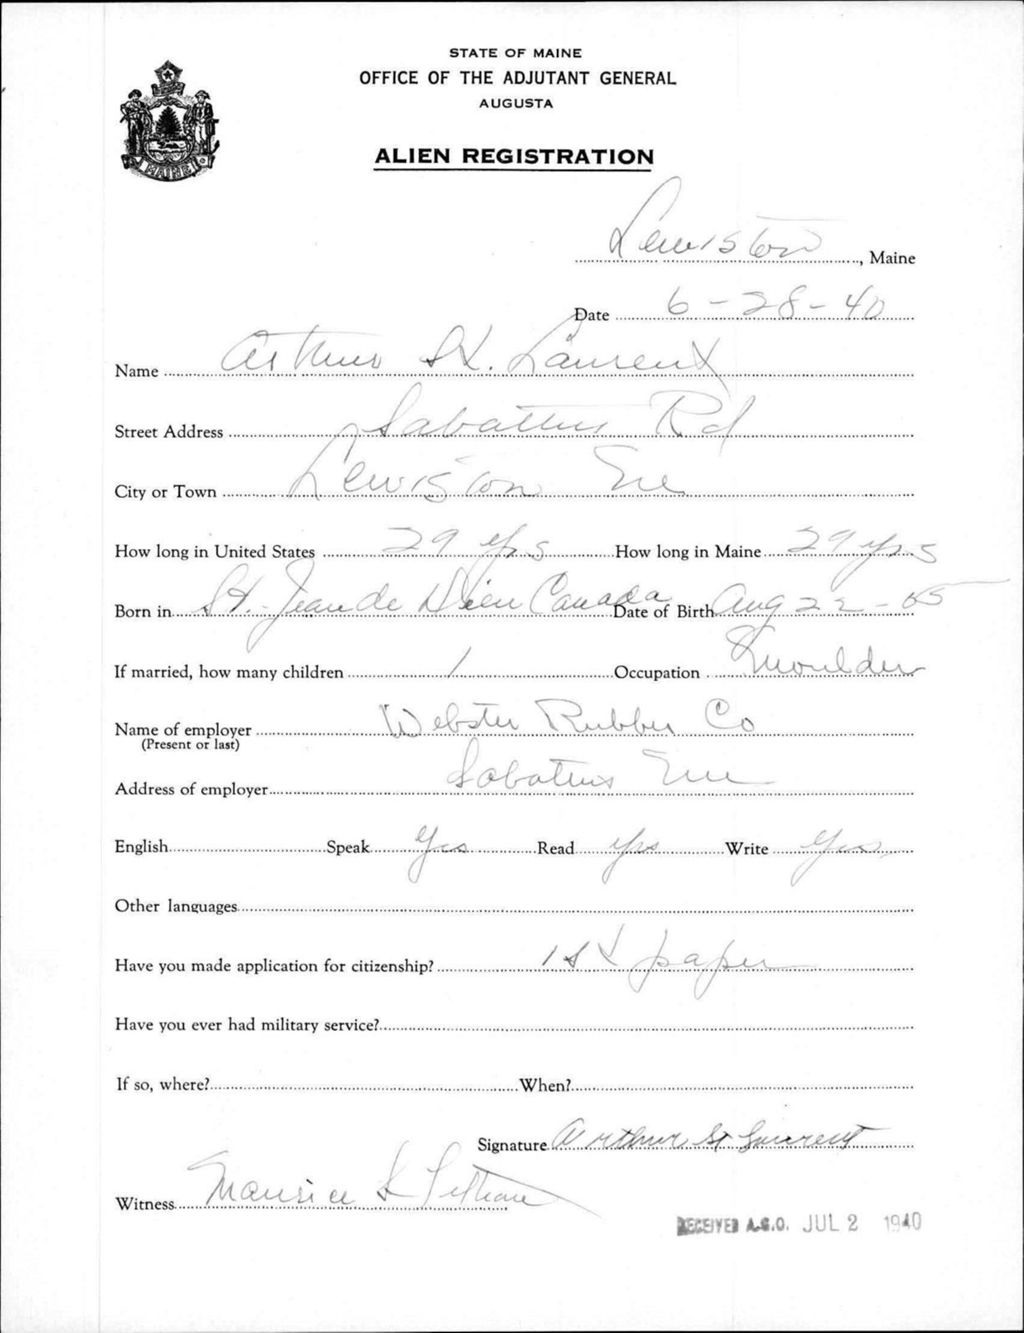 STATE OF MAINE
OFFICE OF THE ADJUTANT GENERAL
AUGUSTA
MAINE
ALIEN REGISTRATION
Lewiston, Maine
Date 6-28-40
Name Arthur St. Laurent
Street Address Sabattus Rd
City or Town Lewiston Me
How long in United States 29 yrs How long in Maine 29 yrs
Born in St. Jean de Dieu Canada Date of Birth Aug 22-05
If married, how many children 1 Occupation Moulder
Name of employer Webster Rubber Co
(Present or last)
Address of employer Sabattus Me
English Speak Yes Read Yes Write Yes
Other languages
Have you made application for citizenship? 1st paper
Have you ever had military service?
If so, where? When?
Signature Arthur St Laurent
Witness Maurice
RECEIVED A.G.O. JUL 2 1940